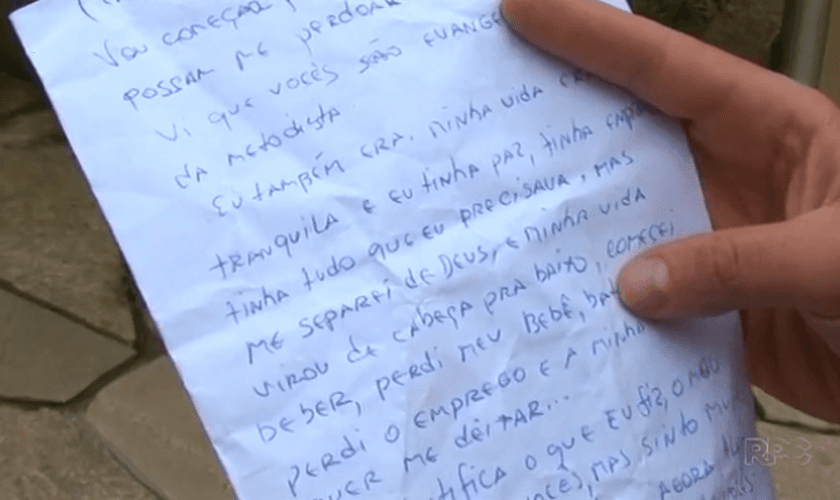 Vou começar,
possam me perdoar
vi que vocês são evangé
da metodista.
Eu também era. Minha vida era
tranquila e eu tinha paz, tinha empr
tinha tudo que eu precisava, mas
me separei de Deus, e minha vida
virou de cabeça pra baixo, comecei
beber, perdi meu bebê, bat
perdi o emprego e a minha
quer me deitar...
tifica o que eu fiz, o meu
vocês, mas sinto mu
agora tu
RPC